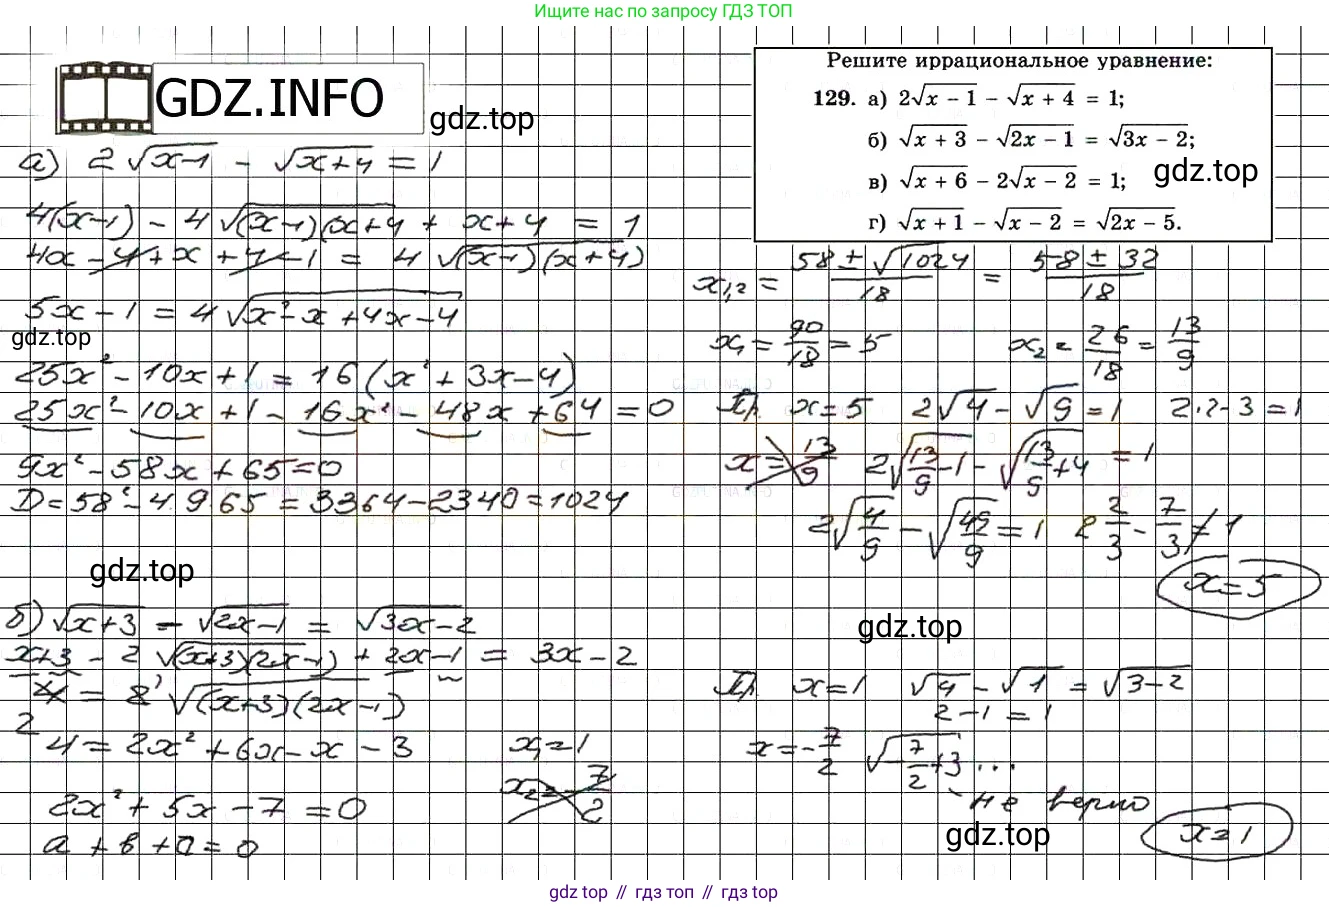 Ищите нас по запросу ГДЗ ТОП
GDZ.INFO
gdz.top
Решите иррациональное уравнение:
129. а) 2√(x − 1) − √(x + 4) = 1;
б) √(x + 3) − √(2x − 1) = √(3x − 2);
в) √(x + 6) − 2√(x − 2) = 1;
gdz.top
г) √(x + 1) − √(x − 2) = √(2x − 5).
а) 2√(x-1) - √(x+4) = 1
4(x-1) - 4√((x-1)(x+4) + x+4 = 1
4x - 4 + x + 4 - 1 = 4√((x-1)(x+4))
5x - 1 = 4√(x² - x + 4x - 4)
gdz.top
25x² - 10x + 1 = 16(x² + 3x - 4)
25x² - 10x + 1 - 16x² - 48x + 64 = 0
9x² - 58x + 65 = 0
D = 58² - 4·9·65 = 3364 - 2340 = 1024
x₁,₂ = (58 ± √1024)/18 = (58 ± 32)/18
x₁ = 90/18 = 5 x₂ = 26/18 = 13/9
Пр. x = 5 2√4 - √9 = 1 2·2 - 3 = 1
x = 13/9 2√(13/9 - 1) - √(13/9 + 4) = 1
2√(4/9) - √(49/9) = 1 2 2/3 - 7/3 ≠ 1
x = 5
gdz.top
б) √(x+3) - √(2x-1) = √(3x-2)
x+3 - 2√((x+3)(2x-1)) + 2x-1 = 3x - 2
4 = 2√((x+3)(2x-1))
2
4 = 2x² + 6x - x - 3
2x² + 5x - 7 = 0
a + в + c = 0
x₁ = 1
x₂ = -7/2
gdz.top
Пр. x = 1 √4 - √1 = √(3-2)
2 - 1 = 1
x = -7/2 √(-7/2 + 3) ...
- не верно
gdz.top
x = 1
gdz top // гдз топ // гдз top